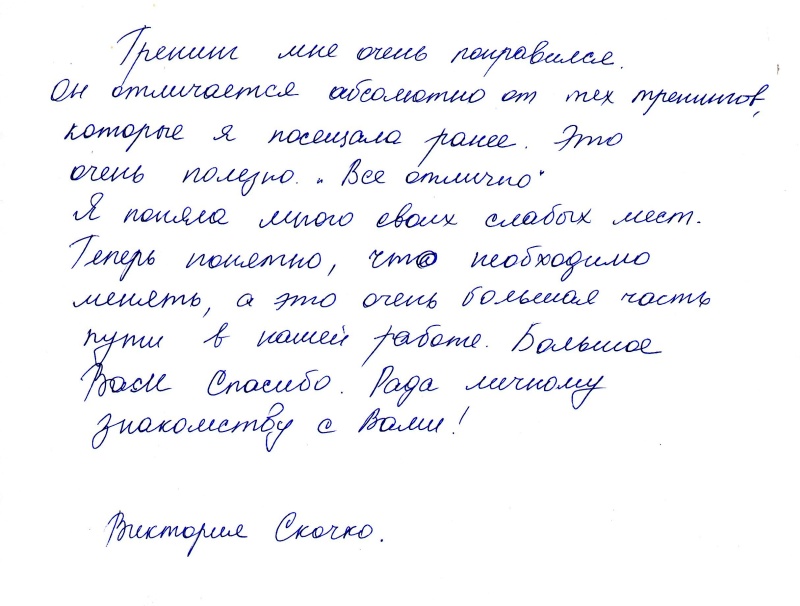 Тренинг мне очень понравился.
Он отличается абсолютно от тех тренингов,
которые я посещала ранее. Это
очень полезно. „Все отлично“
Я поняла много своих слабых мест.
Теперь понятно, что необходимо
менять, а это очень большая часть
пути в нашей работе. Большое
Вам Спасибо. Рада личному
знакомству с Вами!
Виктория Скочко.